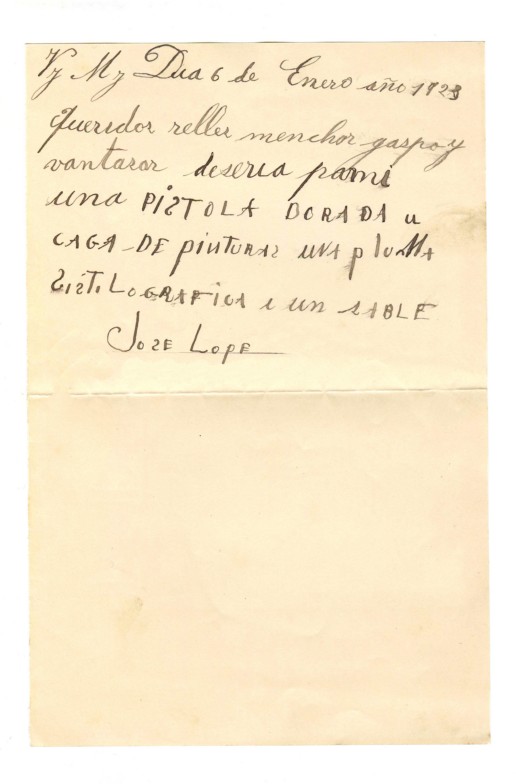 Vy My Dia 6 de Enero año 1923
queridor reller menchor gaspoy
vantazar deseria pami
una PISTOLA DORADA u
CAGA-DE pinturas una pluma
EISTILOGRAFICA i un SABLE
JOSE LOPE